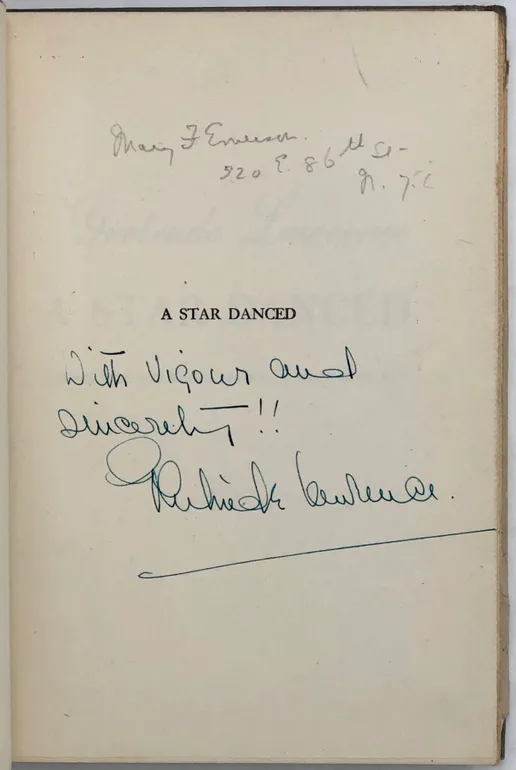 Mary F Emerson.
520 E. 86th St-
N. Y. C
A STAR DANCED
With Vigour and
sincerity!!
Gertrude Lawrence.